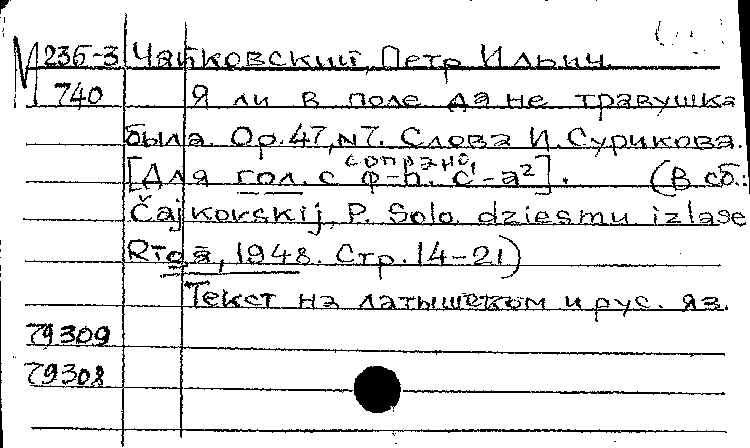 М 236-3 Чайковский, Петр Ильич.
740 Я ли в поле да не травушка
была. Op.47, N7. Слова И. Сурикова.
сопрано,
[Для гол. с ф-п. c¹-a²]. (В сб.:
Čajkovskij, P. Solo dziesmu izlase
Rīgā, 1948. Стр. 14-21)
Текст на латышском и рус. яз.
79309
79308